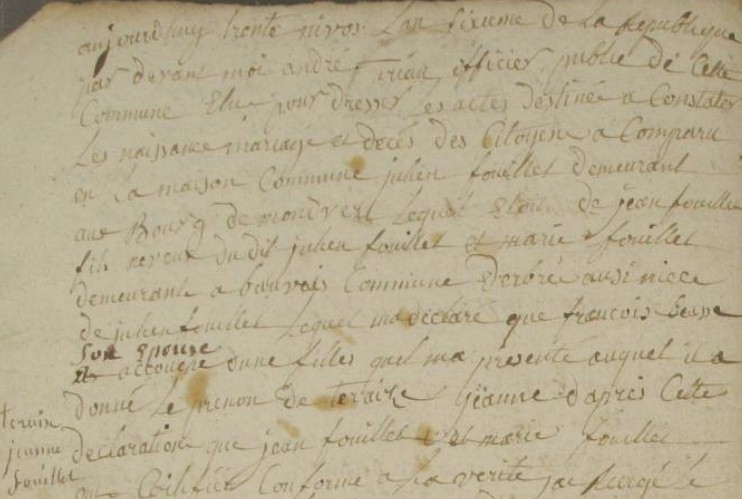 aujourdhuy trente nivos Lan sixieme De La Republique
par devant moi andré officier public de Cette
Commune Elu pour dresser Les actes destinée a Constater
Les naissance mariage et decès des Citoyens a Comparu
en La maison Commune julien fouillet demeurant
aux Bourg de mondvert Lequel de jean fouillet
fils neveux du dit julien fouillet et marie fouillet
demeurante a bauvais Commune Derbrée ausi niece
de julien fouillet Lequel ma declaré que francois
Son Epouse
accouché dune filles quil ma présenté auquel il a
donné Le prenon De jeanne daprès Cette
declaration que jean fouillet et marie fouillet
Conforme a La verité
jeanne
fouillet